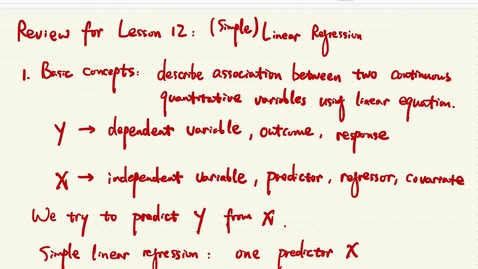 Review for Lesson 12: (Simple) Linear Regression
1. Basic concepts: describe association between two continuous
quantitative variables using linear equation.
Y → dependent variable, outcome, response
X → independent variable, predictor, regressor, covariate
We try to predict Y from X.
Simple linear regression: one predictor X